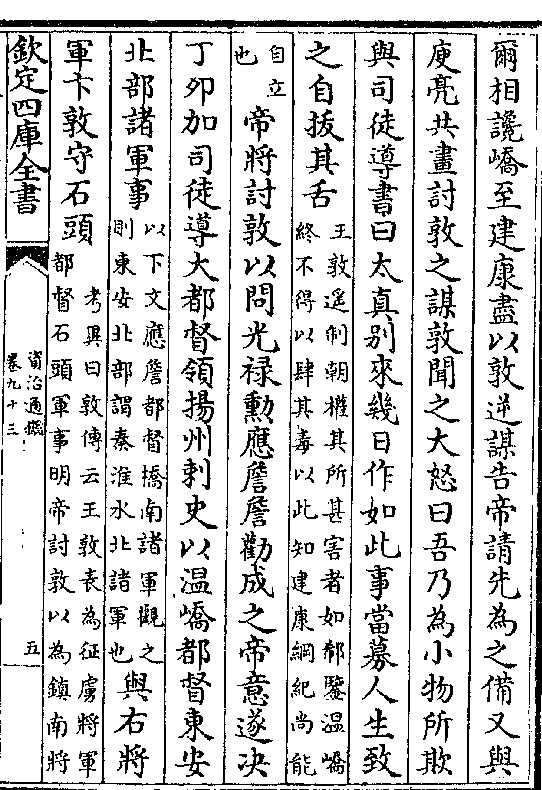 爾相讒嶠至建康盡以敦逆謀告帝請先為之備又與
庾亮共畫討敦之謀敦聞之大怒曰吾乃為小物所欺
與司徒導書曰太真別來幾日作如此事當募人生致
之自拔其舌
王敦遥制朝權其所甚害者如郗鑒温嶠
終不得以肆其毒以此知建康綱紀尚能
自立
也
帝將討敦以問光禄勲應詹詹勸成之帝意遂决
丁夘加司徒導大都督領揚州刺史以温嶠都督東安
北部諸軍事
以下文應詹都督橋南諸軍觀之
則東安北部謂秦淮水北諸軍也
與右將
軍卞敦守石頭
考異曰敦傳云王敦表為征虜將軍
都督石頭軍事明帝討敦以為鎮南將
欽定四庫全書
資治通鑑
卷九十三
五